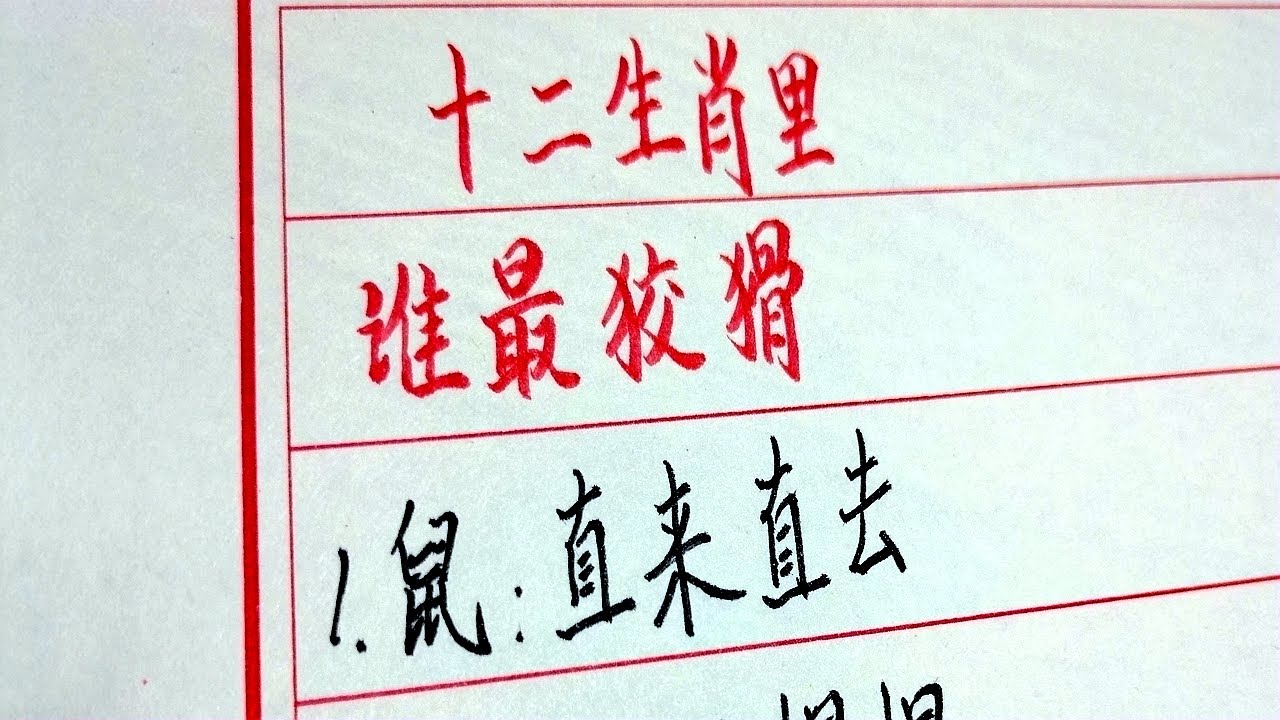 十二生肖里
谁最狡猾
1.鼠:直来直去